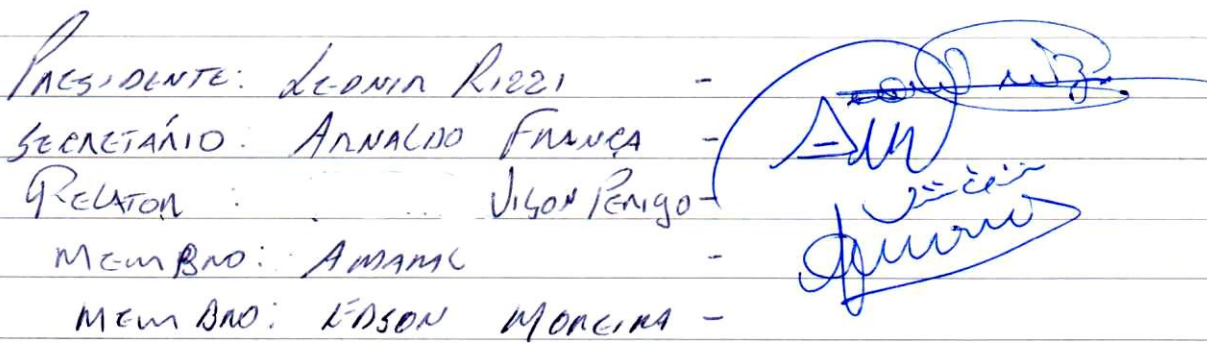 PRESIDENTE: LEONIR RIZZI -
SECRETÁRIO: ARNALDO FRANÇA -
RELATOR : VILSON PERIGO -
MEMBRO: AMARAL -
MEMBRO: EDSON MOREIRA -